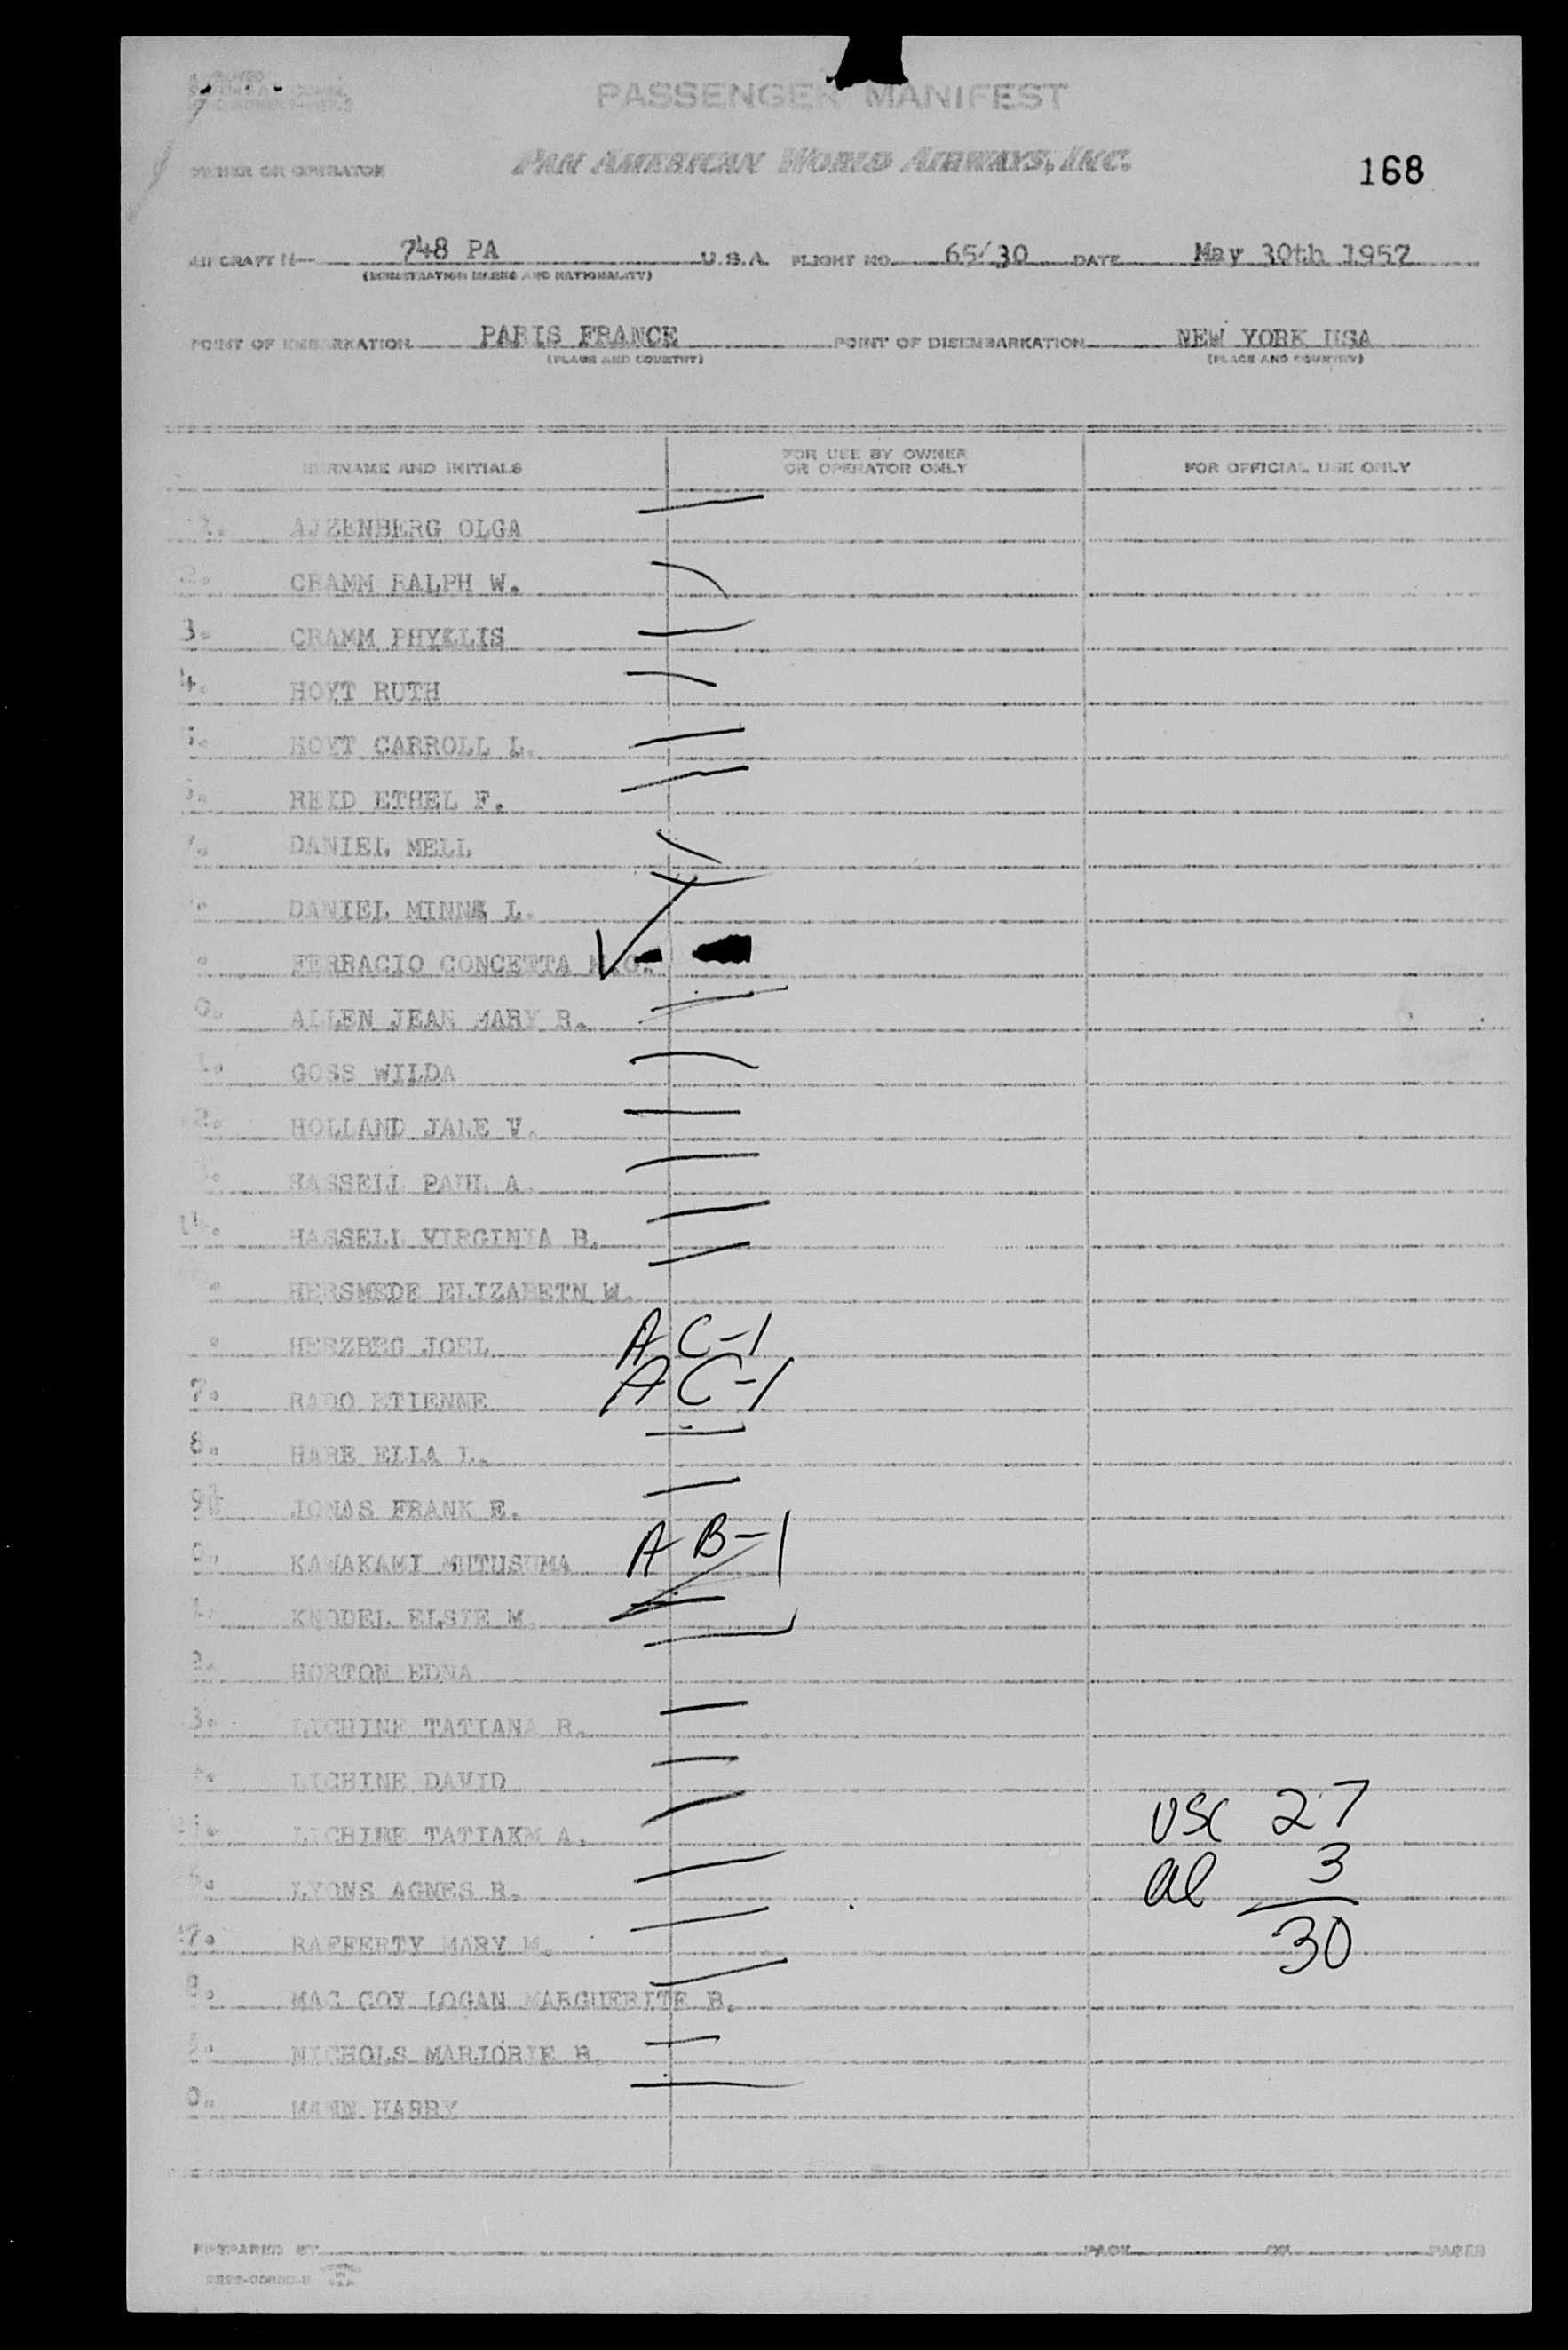 PASSENGER MANIFEST
OWNER OR OPERATOR PAN AMERICAN WORLD AIRWAYS, INC. 168
AIRCRAFT N— 748 PA U.S.A. FLIGHT NO. 65/30 DATE May 30th 1957
(REGISTRATION MARKS AND NATIONALITY)
POINT OF EMBARKATION PARIS FRANCE POINT OF DISEMBARKATION NEW YORK USA
(PLACE AND COUNTRY) (PLACE AND COUNTRY)
SURNAME AND INITIALS FOR USE BY OWNER OR OPERATOR ONLY FOR OFFICIAL USE ONLY
1. AJZENBERG OLGA
2. CRAMM RALPH W.
3. CRAMM PHYLLIS
4. HOYT RUTH
5. HOYT CARROLL L.
REID ETHEL F.
7. DANIEL MELL
DANIEL MINNA L.
FERRACIO CONCETTA
0. ALLEN JEAN MARY R.
1. GOSS WILDA
2. HOLLAND JANE V.
HASSELL PAUL A.
14. HASSELL VIRGINIA B.
HERSMEDE ELIZABETN W.
HERZBEG JOEL A C-1
7. RADO ETIENNE A C-1
8. HARE ELLA L.
9. JONAS FRANK E.
0. KAWAKAMI MUTUSUMA A B-1
1. KNODEL ELSIE M.
2. HORTON EDNA
3. LICHINE TATIANA R.
LICHINE DAVID
LICHINE A. USC 27
LYONS AGNES R. al 3
7. RAFFERTY MARY M. 30
8. MAC COY LOGAN MARGUERITE B.
NICHOLS MARJORIE B.
0. MANN HARRY
PREPARED BY PAGE OF PAGES